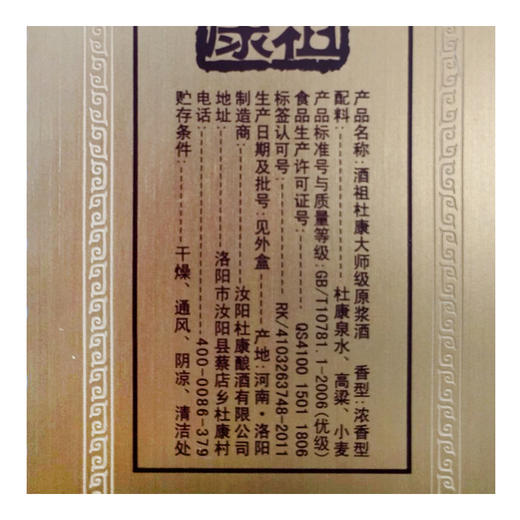 康祖
产品名称:酒祖杜康大师级原浆酒 香型:浓香型
配料--------------杜康泉水、高粱、小麦
产品标准号与质量等级:GB/T10781.1-2006(优级)
食品生产许可证号----------QS4100 1501 1806
标签认可号------------RK/4103263748-2011
生产日期及批号:见外盒----产地:河南·洛阳
制造商------------汝阳杜康酿酒有限公司
地址--------洛阳市汝阳县蔡店乡杜康村
电话----------------400-0086-379
贮存条件--------干燥、通风、阴凉、清洁处